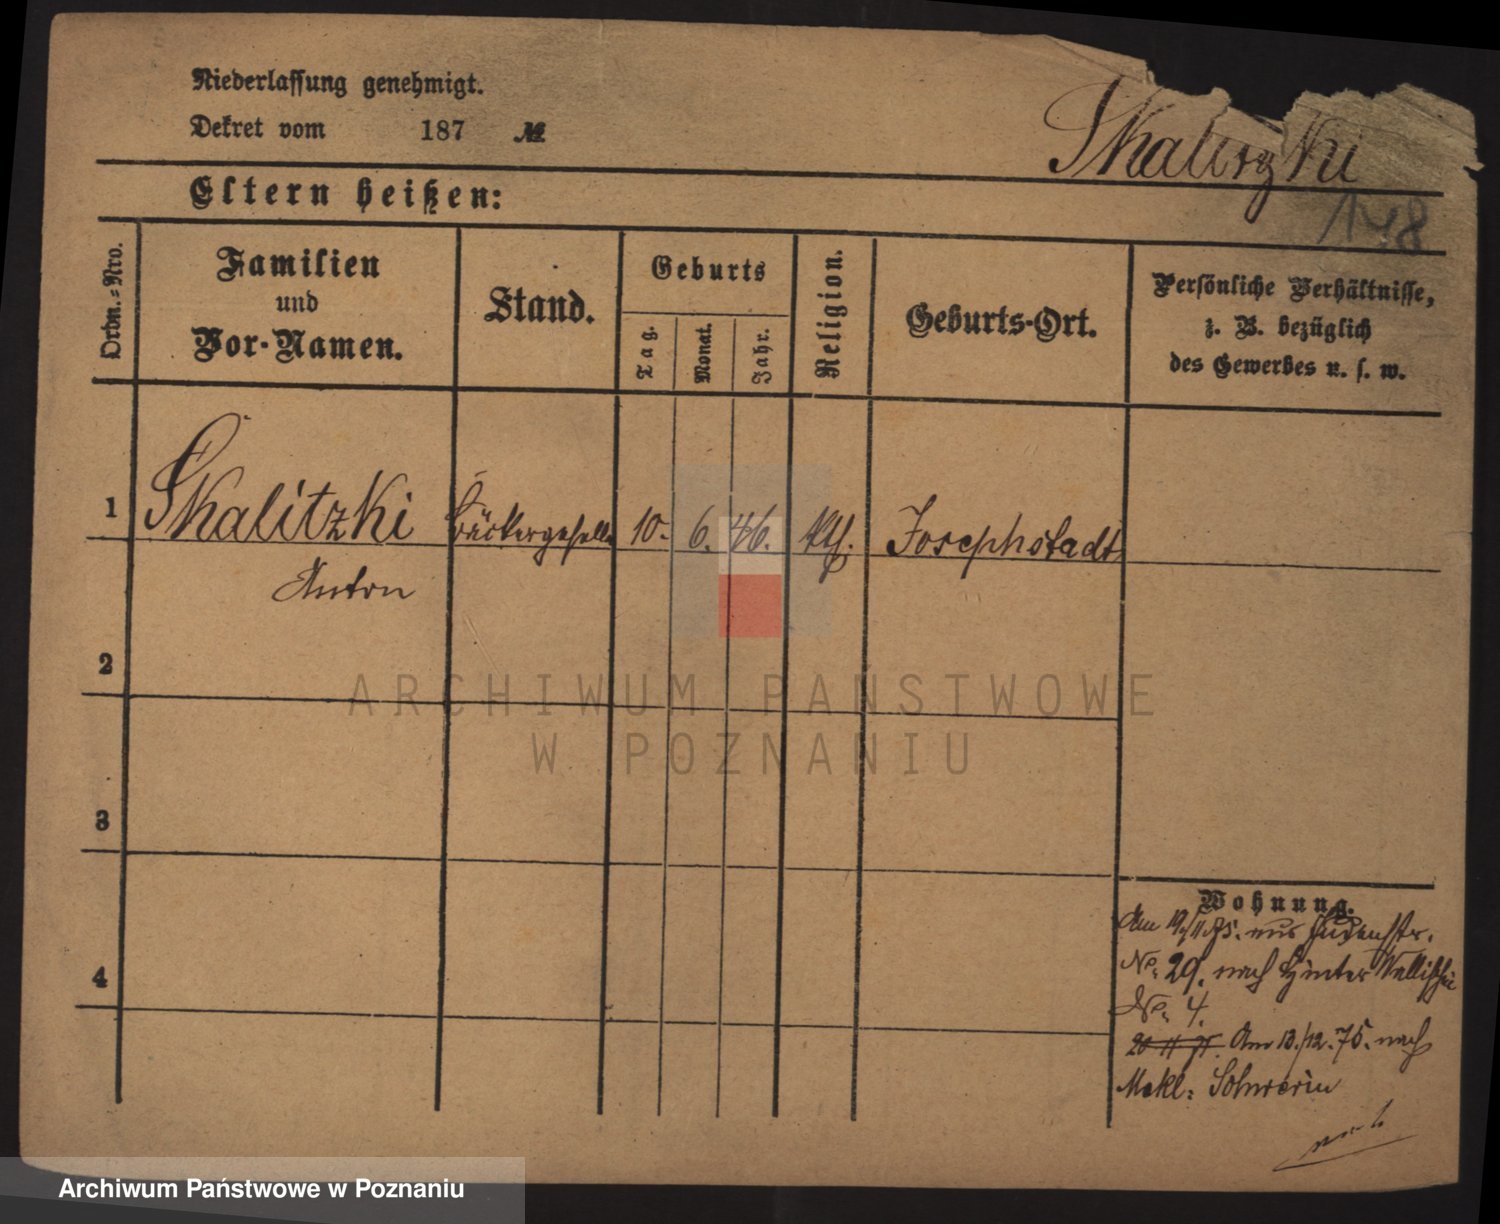 Niederlassung genehmigt.
Dekret vom 187 №
Skaliczki
Eltern heißen:
148
Ordn.-Nro.
Familien
und
Vor-Namen.
Stand.
Geburts
Tag.
Monat.
Jahr.
Religion.
Geburts-Ort.
Persönliche Verhältnisse,
z. B. bezüglich
des Gewerbes u. s. w.
1 Skalitzki Bäckergeselle 10. 6. 46. kth. Josephstadt
Anton
2
3
4
Wohnung.
Am 19/11.75. aus Judenstr.
No. 29. nach Hinter Wallischei
No. 4.
20 11 75. Am 13./12.75. nach
Mekl: Schwerin
ARCHIWUM PAŃSTWOWE
W POZNANIU
Archiwum Państwowe w Poznaniu